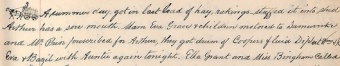 A summer day, got in last load of hay, rakings, stuffed it into shed
Arthur has a sore mouth. Main two Grace & children motors to
and Mr Pain prescribed for Arthur, they got drum of Coopers fluid Dip
Eva & Basil with Auntie again tonight. Ella Grant and Miss Bingham called